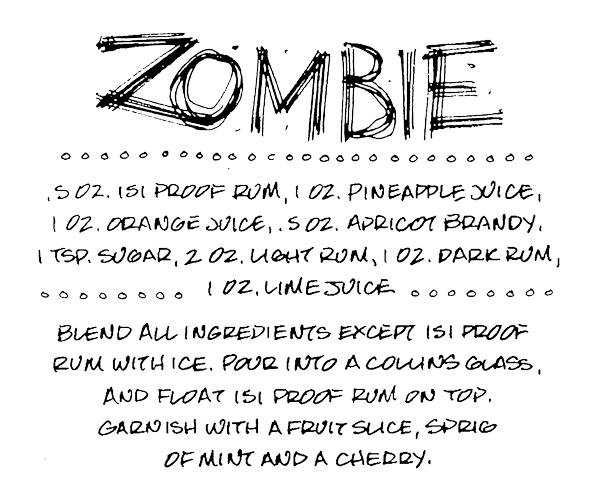 ZOMBIE
.5 OZ. 151 PROOF RUM, 1 OZ. PINEAPPLE JUICE,
1 OZ. ORANGE JUICE, .5 OZ. APRICOT BRANDY.
1 TSP. SUGAR, 2 OZ. LIGHT RUM, 1 OZ. DARK RUM,
1 OZ. LIME JUICE
BLEND ALL INGREDIENTS EXCEPT 151 PROOF
RUM WITH ICE. POUR INTO A COLLINS GLASS,
AND FLOAT 151 PROOF RUM ON TOP.
GARNISH WITH A FRUIT SLICE, SPRIG
OF MINT AND A CHERRY.